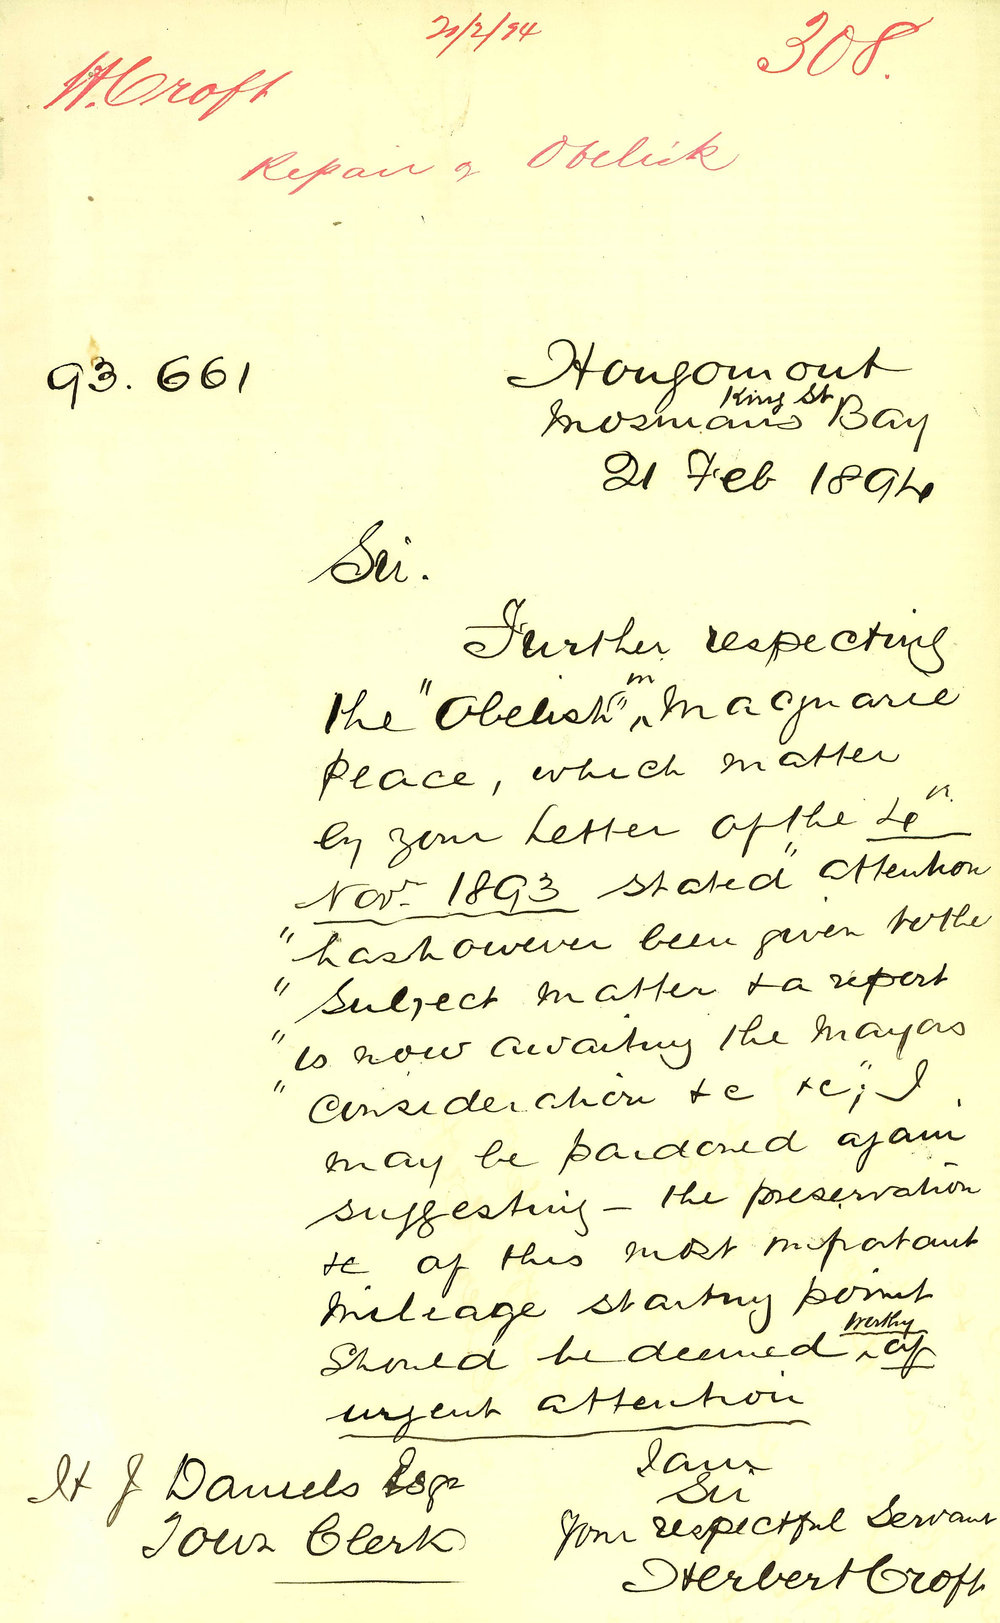 21/2/94
308.
H. Croft
Repair of Obelisk
93. 661
Hougomont
King St
Mosmans Bay
21 Feb 1894
Sir.
Further respecting
the "Obelisk" in Macquarie
Place, which matter
by your Letter of the 4th
Novr 1893 stated "attention
"has however been given to the
"Subject matter & a report
"is now awaiting the Mayors
"consideration &c &c"; I
may be pardoned again
suggesting – the preservation
&c of this most important
Mileage starting point
Should be deemed worthy of
urgent attention
I am
Sir
Your respectful Servant
Herbert Croft
H J Daniels Esqr
Town Clerk